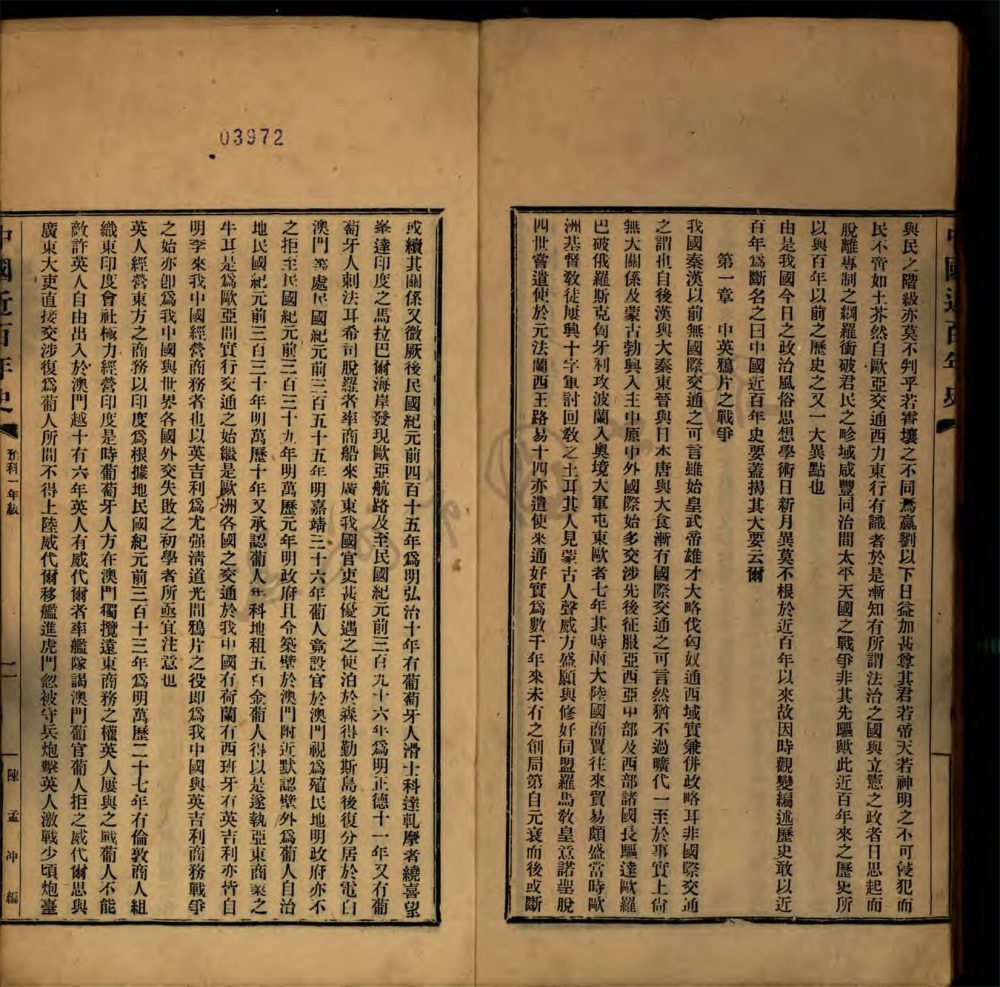 與民之階級亦莫不判乎若霄壤之不同焉嬴劉以下日益加甚尊其君若帝天若神明之不可侵犯而
民不啻如土芥然自歐亞交通西力東行有識者於是漸知有所謂法治之國與立憲之政者日思起而
脫離專制之綱羅衝破君民之畛域咸豐同治間太平天國之戰爭非其先驅歟此近百年來之歷史所
以與百年以前之歷史之又一大異點也
由是我國今日之政治風俗思想學術日新月異莫不根於近百年以來故因時觀變編述歷史敢以近
百年爲斷名之曰中國近百年史要蓋揭其大要云爾
第一章 中英鴉片之戰爭
我國秦漢以前無國際交通之可言雖始皇武帝雄才大略伐匈奴通西域實兼併政略耳非國際交通
之謂也自後漢與大秦東晉與日本唐與大食漸有國際交通之可言然猶不過曠代一至於事實上尙
無大關係及蒙古勃興入主中原中外國際始多交涉先後征服亞西亞中部及西部諸國長驅達歐羅
巴破俄羅斯克匈牙利攻波蘭入奧境大軍屯東歐者七年其時兩大陸國商賈往來貿易頗盛當時歐
洲基督敎徒屢興十字軍討回敎之土耳其人見蒙古人聲威方盛願與修好同盟羅馬敎皇意諾聖脫
四世嘗遣使於元法蘭西王路易十四亦遣使來通好實爲數千年來未有之創局第自元衰而後或斷
中國近百年史
03972
或續其關係又微厥後民國紀元前四百十五年爲明弘治十年有葡萄牙人滑士科達軋摩者繞喜望
峯達印度之馬拉巴爾海岸發現歐亞航路及至民國紀元前三百九十六年爲明正德十一年又有葡
萄牙人刺法耳希司脫羅者率商船來廣東我國官吏甚優遇之使泊於森得勒斯島後復分居於電白
澳門等處民國紀元前三百五十五年明嘉靖三十六年葡人竟設官於澳門視爲殖民地明政府亦不
之拒至民國紀元前三百三十九年明萬歷元年明政府且令築壁於澳門附近默認壁外爲葡人自治
地民國紀元前三百三十年明萬歷十年又承認葡人年科地租五百金葡人得以是遂執亞東商業之
牛耳是爲歐亞間實行交通之始繼是歐洲各國之交通於我中國有荷蘭有西班牙有英吉利亦皆自
明季來我中國經營商務者也以英吉利爲尤强淸道光間鴉片之役即爲我中國與英吉利商務戰爭
之始亦即爲我中國與世界各國外交失敗之初學者所亟宜注意也
英人經營東方之商務以印度爲根據地民國紀元前三百十三年爲明萬歷二十七年有倫敦商人組
織東印度會社極力經營印度是時葡萄牙人方在澳門獨攬遠東商務之權英人屢與之戰葡人不能
敵許英人自由出入於澳門越十有六年英人有威代爾者率艦隊謁澳門葡官葡人拒之威代爾思與
廣東大吏直接交涉復爲葡人所間不得上陸威代爾移艦進虎門忽被守兵炮擊英人激戰少頃炮臺
中國近百年史 預科一年級 二 陳孟冲編